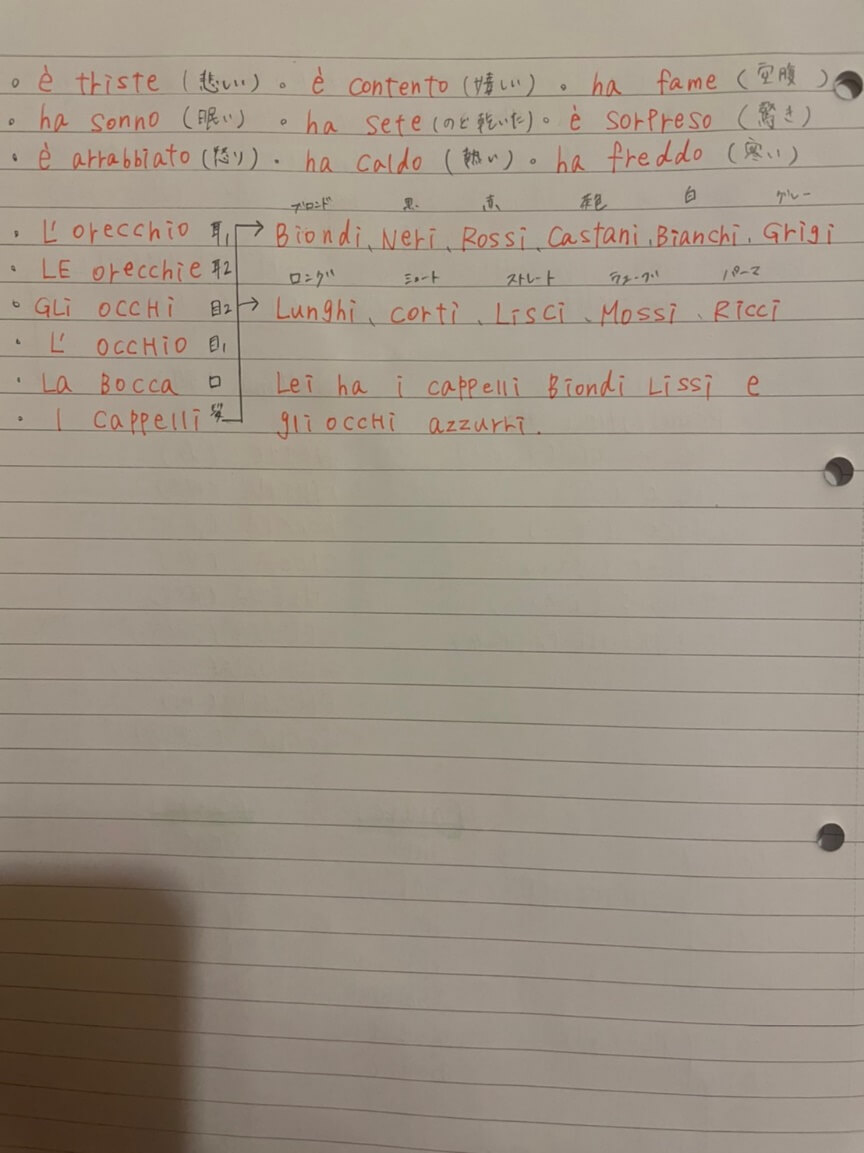 。è triste (悲しい)。è contento (嬉しい)。ha fame (空腹)
。ha sonno (眠い)。ha sete (のど乾いた)。è sorpreso (驚き)
・è arrabbiato (怒り)・ha caldo (熱い)。ha freddo (寒い)
ブロンド 黒 赤 茶色 白 グレー
・L'orecchio 耳1 → Biondi、Neri、Rossi、Castani、Bianchi、Grigi
・LE orecchie 耳2 ロング ショート ストレート ウェーブ パーマ
。GLi OCCHi 目2 → Lunghi、corti、Lisci、Mossi、Ricci
・L' OCCHiO 目1
・LA BOCCA 口 Lei ha i cappelli Biondi Lissi e
・I Cappelli 髪 gli OCCHi azzurri.